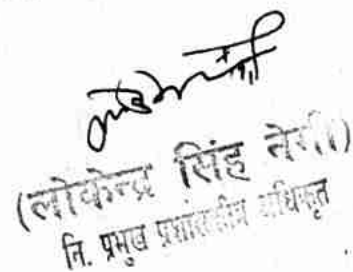 (लोकेन्द्र सिंह नेगी)
नि. प्रमुख प्रशासकीय अधिकृत